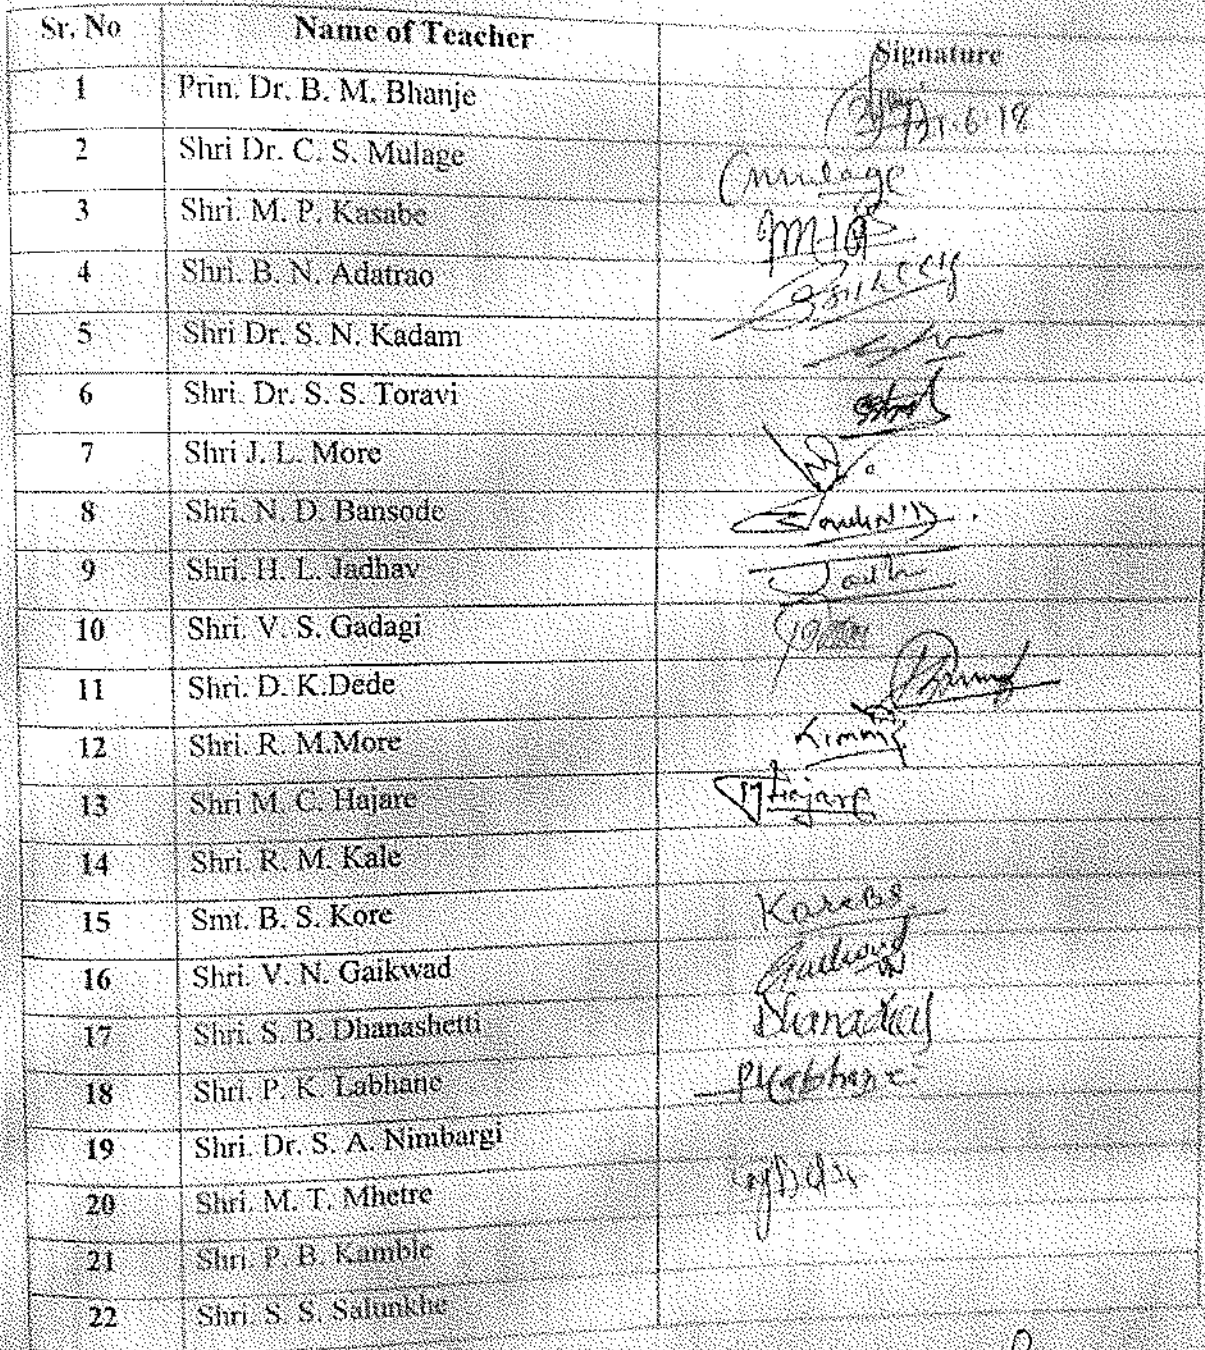 Sr. No Name of Teacher Signature
1 Prin. Dr. B. M. Bhanje 21.6.18
2 Shri Dr. C. S. Mulage Cmulage
3 Shri. M. P. Kasabe
4 Shri. B. N. Adatrao
5 Shri Dr. S. N. Kadam
6 Shri. Dr. S. S. Toravi
7 Shri J. L. More
8 Shri. N. D. Bansode
9 Shri. H. L. Jadhav
10 Shri. V. S. Gadagi
11 Shri. D. K.Dede
12 Shri. R. M.More
13 Shri M. C. Hajare Hajare
14 Shri. R. M. Kale
15 Smt. B. S. Kore Kore BS.
16 Shri. V. N. Gaikwad
17 Shri. S. B. Dhanashetti
18 Shri. P. K. Labhane PKLabhane
19 Shri. Dr. S. A. Nimbargi
20 Shri. M. T. Mhetre
21 Shri. P. B. Kamble
22 Shri. S. S. Salunkhe